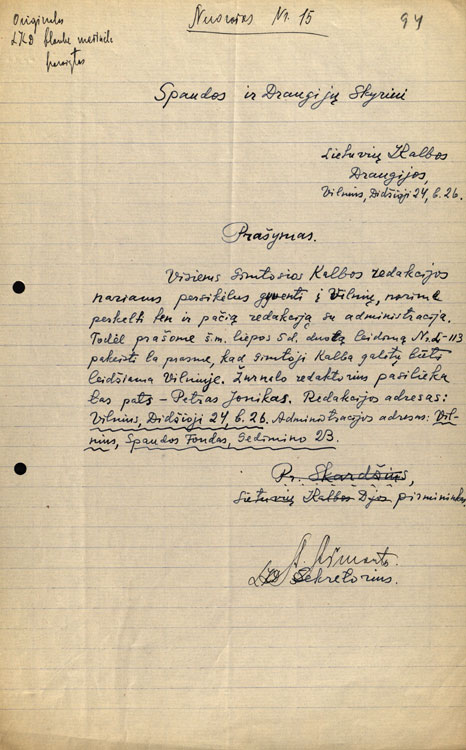 Originalas
LKD blanke
Nuorašas Nr. 15
94
Spaudos ir Draugijų Skyriui
Lietuvių Kalbos
Draugijos,
Vilnius, Didžioji 24, b. 26.
Prašymas.
Visiems Gimtosios Kalbos redakcijos
nariams persikėlus gyventi į Vilnių, norime
perkelti ten ir pačią redakciją su administracija.
Todėl prašome š.m. liepos 5 d. duotą leidimą Nr. L-113
pakeisti ta prasme, kad Gimtoji Kalba galėtų būti
leidžiama Vilniuje. Žurnalo redaktorius pasilieka
tas pats – Petras Jonikas. Redakcijos adresas:
Vilnius, Didžioji 24 b. 26. Administracijos adresas: Vil-
nius, Spaudos Fondas, Gedimino 2B.
Pr. Skardžius,
Lietuvių Kalbos D-jos pirmininkas
LKD Sekretorius.